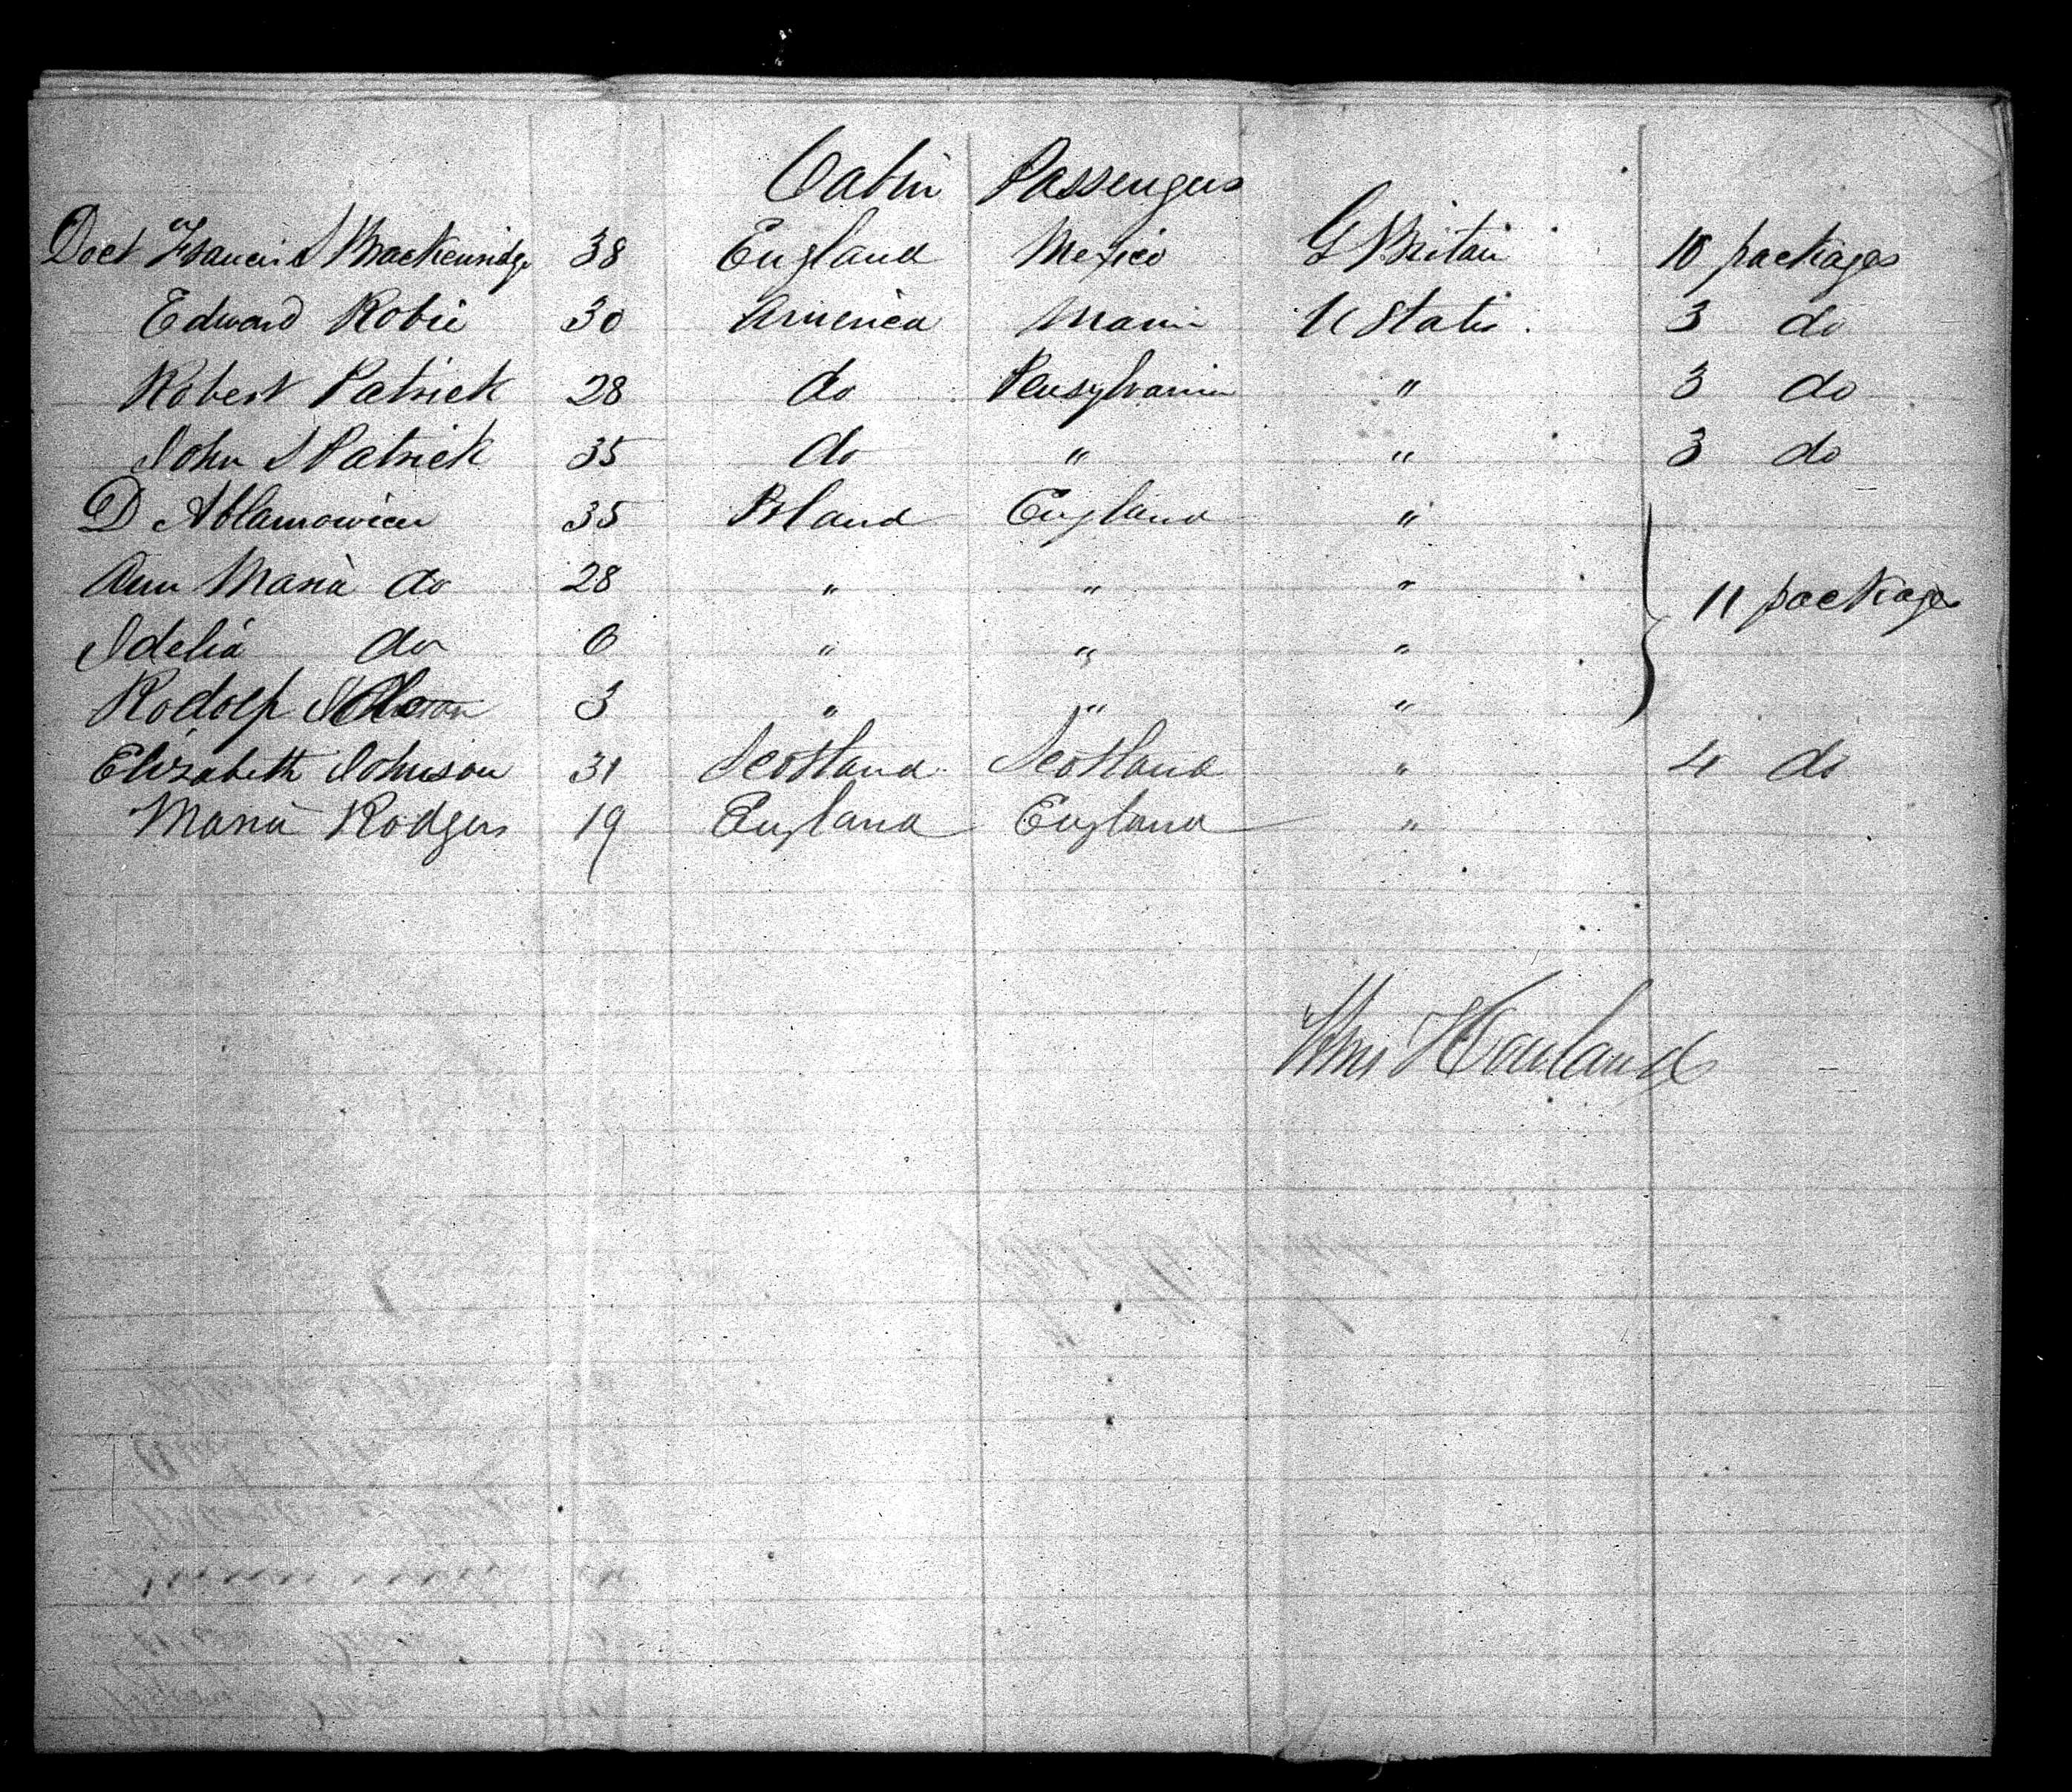 Cabin Passengers
Doct Francis S Mackenridge 38 England Mexico G Britain 10 packages
Edward Robie 30 America Main U States 3 do
Robert Patrick 28 do Pensylvania " 3 do
John S Patrick 35 do " " 3 do
D Ablamowicz 35 Poland England "
Ann Maria do 28 " " " 11 packages
Idelia do 6 " " "
Rodolf 3 " " "
Elizabeth Johnson 31 Scotland Scotland " 4 do
Maria Rodgers 19 England England "
Howland